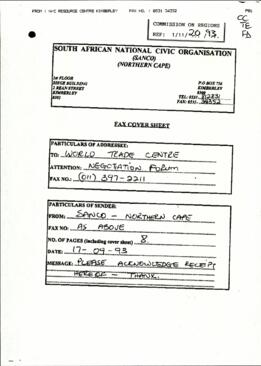 FROM : NYC RESOURCE CENTRE KIMBERLEY FAX NO. : 0531 34352 P01
CC
TE
FA
COMMISSION ON REGIONS
REF: 1/11/20/93.
SOUTH AFRICAN NATIONAL CIVIC ORGANISATION
(SANCO)
(NORTHERN CAPE)
1st FLOOR
BUILDING
2 BEAN STREET
KIMBERLEY
8301
P O BOX
KIMBERLEY
8300
TEL: 0531-
FAX: 0531- 34352
FAX COVER SHEET
PARTICULARS OF ADDRESSEE:
TO: WORLD TRADE CENTRE
ATTENTION: NEGOTIATION FORUM
FAX NO.: (011) 397-2211
PARTICULARS OF SENDER:
FROM: SANCO - NORTHERN CAPE
FAX NO: AS ABOVE
NO. OF PAGES (including cover sheet) 8
DATE: 17-09-93
MESSAGE: PLEASE ACKNOWLEDGE RECEIPT
HEREOF - THANK.